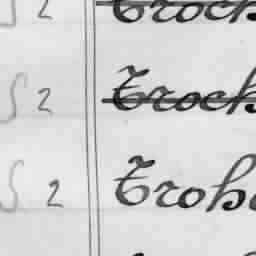 S 2 Trock
S 2 Trock
S 2 Troh